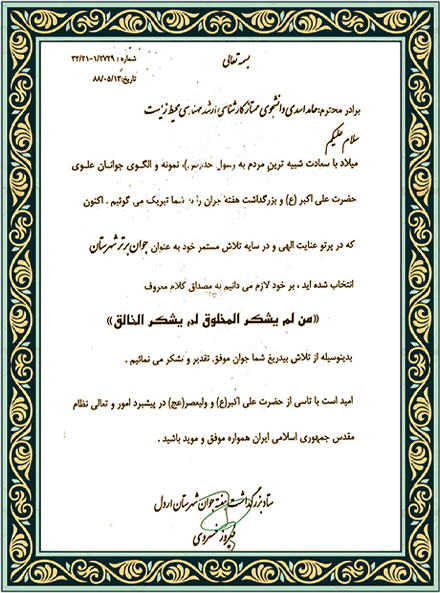 بسمه تعالی
شماره : ۳۲/۲۱-۱/۲۷۲۹
تاریخ: ۸۸/۰۵/۱۳
برادر محترم: حامد اسدی دانشجوی ممتاز کارشناسی ارشد مهندسی محیط زیست
سلام علیکم
میلاد با سعادت شبیه ترین مردم به رسول خدا(ص)، نمونه و الگوی جوانان علوی
حضرت علی اکبر (ع) و بزرگداشت هفته جوان را به شما تبریک می گوئیم . اکنون
که در پرتو عنایت الهی و در سایه تلاش مستمر خود به عنوان جوان برتر شهرستان
انتخاب شده اید ، بر خود لازم می دانیم به مصداق کلام معروف
«من لم یشکر المخلوق لم یشکر الخالق»
بدینوسیله از تلاش بیدریغ شما جوان موفق, تقدیر و تشکر می نمائیم .
امید است با تاسی از حضرت علی اکبر(ع) و ولیعصر(عج) در پیشبرد امور و تعالی نظام
مقدس جمهوری اسلامی ایران همواره موفق و موید باشید .
ستاد بزرگداشت هفته جوان شهرستان اردل
فیروز خسروی